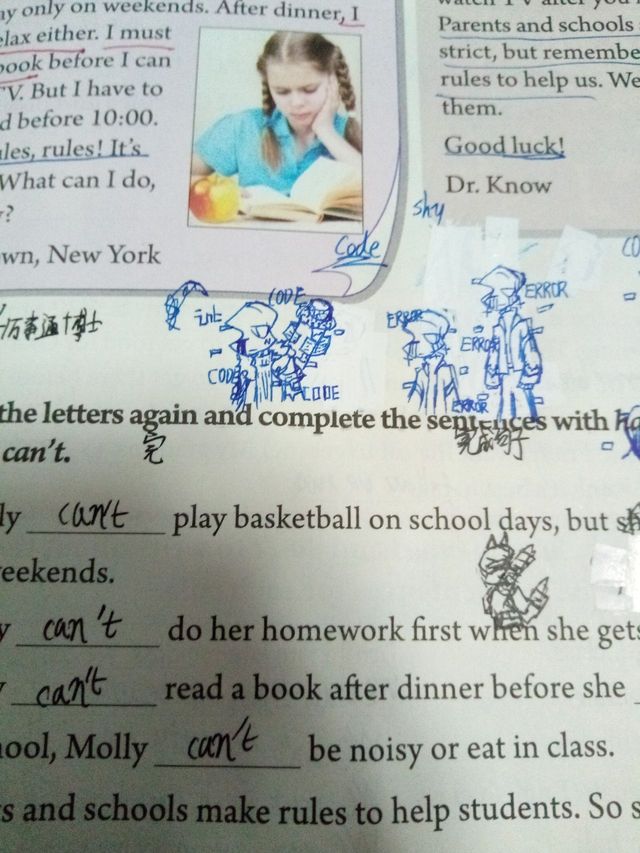 ay only on weekends. After dinner, I
elax either. I must
book before I can
TV. But I have to
d before 10:00.
les, rules! It's
What can I do,
y?
wn, New York
Parents and schools
strict, but remembe
rules to help us. We
them.
Good luck!
Dr. Know
shy
Code
万事通博士
int
CODE
CODE
CODE
ERROR
ERROR
ERROR
ERROR
CO
the letters again and complete the sentences with ha
can't.
完
完成句子
ly can't play basketball on school days, but sh
eekends.
y can't do her homework first when she gets
y can't read a book after dinner before she
ool, Molly can't be noisy or eat in class.
s and schools make rules to help students. So s